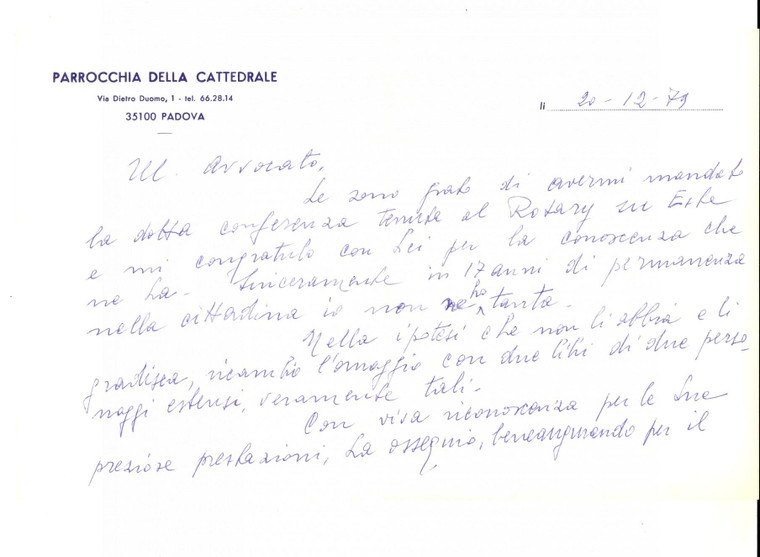 PARROCCHIA DELLA CATTEDRALE
Via Dietro Duomo, 1 - tel. 66.28.14
35100 PADOVA
lì 20-12-79
Ill. Avvocato,
Le sono grato di avermi mandato
la dotta conferenza tenuta al Rotary su Este
e mi congratulo con Lei per la conoscenza che
ne ha. Sinceramente in 17 anni di permanenza
nella cittadina io non ne ho tanta.
Nella ipotesi che non li abbia e li
gradisca, ricambio l'omaggio con due libri di due perso-
naggi estensi, veramente tali.
Con viva riconoscenza per le Sue
preziose prestazioni, La ossequio, beneaugurando per il